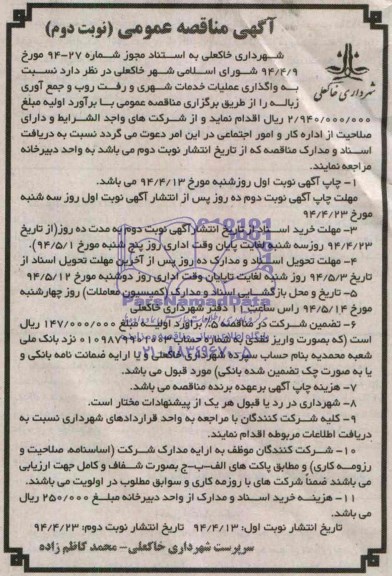 آگهی مناقصه عمومی (نوبت دوم)
شهرداری خاکعلی به استناد مجوز شماره ۲۷-۹۴ مورخ
۹۴/۴/۹ شورای اسلامی شهر خاکعلی در نظر دارد نسبت
به واگذاری عملیات خدمات شهری و رفت روب و جمع آوری
زباله را از طریق برگزاری مناقصه عمومی با برآورد اولیه مبلغ
۲/۹۴۰/۰۰۰/۰۰۰ ریال اقدام نماید و از شرکت های واجد الشرایط و دارای
صلاحیت از اداره کار و امور اجتماعی در این امر دعوت می گردد نسبت به دریافت
اسناد و مدارک مناقصه که از تاریخ انتشار نوبت دوم می باشد به واحد دبیرخانه
مراجعه نمایند.
شهرداری خاکعلی
۱- چاپ آگهی نوبت اول روزشنبه مورخ ۹۴/۴/۱۳ می باشد.
مهلت چاپ آگهی نوبت دوم ده روز پس از انتشار آگهی نوبت اول روز سه شنبه
مورخ ۹۴/۴/۲۳
۳- مهلت خرید اسناد از تاریخ انتشار آگهی نوبت دوم به مدت ده روز(از تاریخ
۹۴/۴/۲۳ روزسه شنبه لغایت پایان وقت اداری روز پنج شنبه مورخ ۹۴/۵/۱).
۴- مهلت تحویل اسناد و مدارک ده روز پس از آخرین مهلت تحویل اسناد از
تاریخ ۹۴/۵/۳ روز شنبه لغایت تاپایان وقت اداری روز دوشنبه مورخ ۹۴/۵/۱۲
۵- تاریخ و محل بازگشایی اسناد و مدارک (کمیسیون معاملات) روز چهارشنبه
مورخ ۹۴/۵/۱۴ راس ساعت ۱۰ دفتر شهرداری خاکعلی
۶- تضمین شرکت در مناقصه ۵٪ برآورد اولیه به مبلغ ۱۴۷/۰۰۰/۰۰۰ ریال
است (که بصورت واریز نقدی به شماره حساب نزد بانک ملی
شعبه محمدیه بنام حساب سپرده شهرداری خاکعلی و یا ارایه ضمانت نامه بانکی و
یا به صورت چک تضمین شده بانکی) مورد قبول می باشد.
۷- هزینه چاپ آگهی برعهده برنده مناقصه می باشد.
۸- شهرداری در رد یا قبول هر یک از پیشنهادات مختار است.
۹- کلیه شرکت کنندگان با مراجعه به واحد قراردادهای شهرداری نسبت به
دریافت اطلاعات مربوطه اقدام نمایند.
۱۰- شرکت کنندگان موظف به ارایه مدارک شرکت (اساسنامه، صلاحیت و
رزومه کاری) و مطابق پاکت های الف-ب-ج بصورت شفاف و کامل جهت ارزیابی
می باشند ضمنا شرکت های با روزمه کاری و سوابق مطلوب در اولویت می باشند.
۱۱- هزینه خرید اسناد و مدارک از واحد دبیرخانه مبلغ ۲۵۰/۰۰۰ ریال
می باشد.
تاریخ انتشار نوبت اول: ۹۴/۴/۱۳ تاریخ انتشار نوبت دوم: ۹۴/۴/۲۳
سرپرست شهرداری خاکعلی- محمد کاظم زاده
ParsNamadData